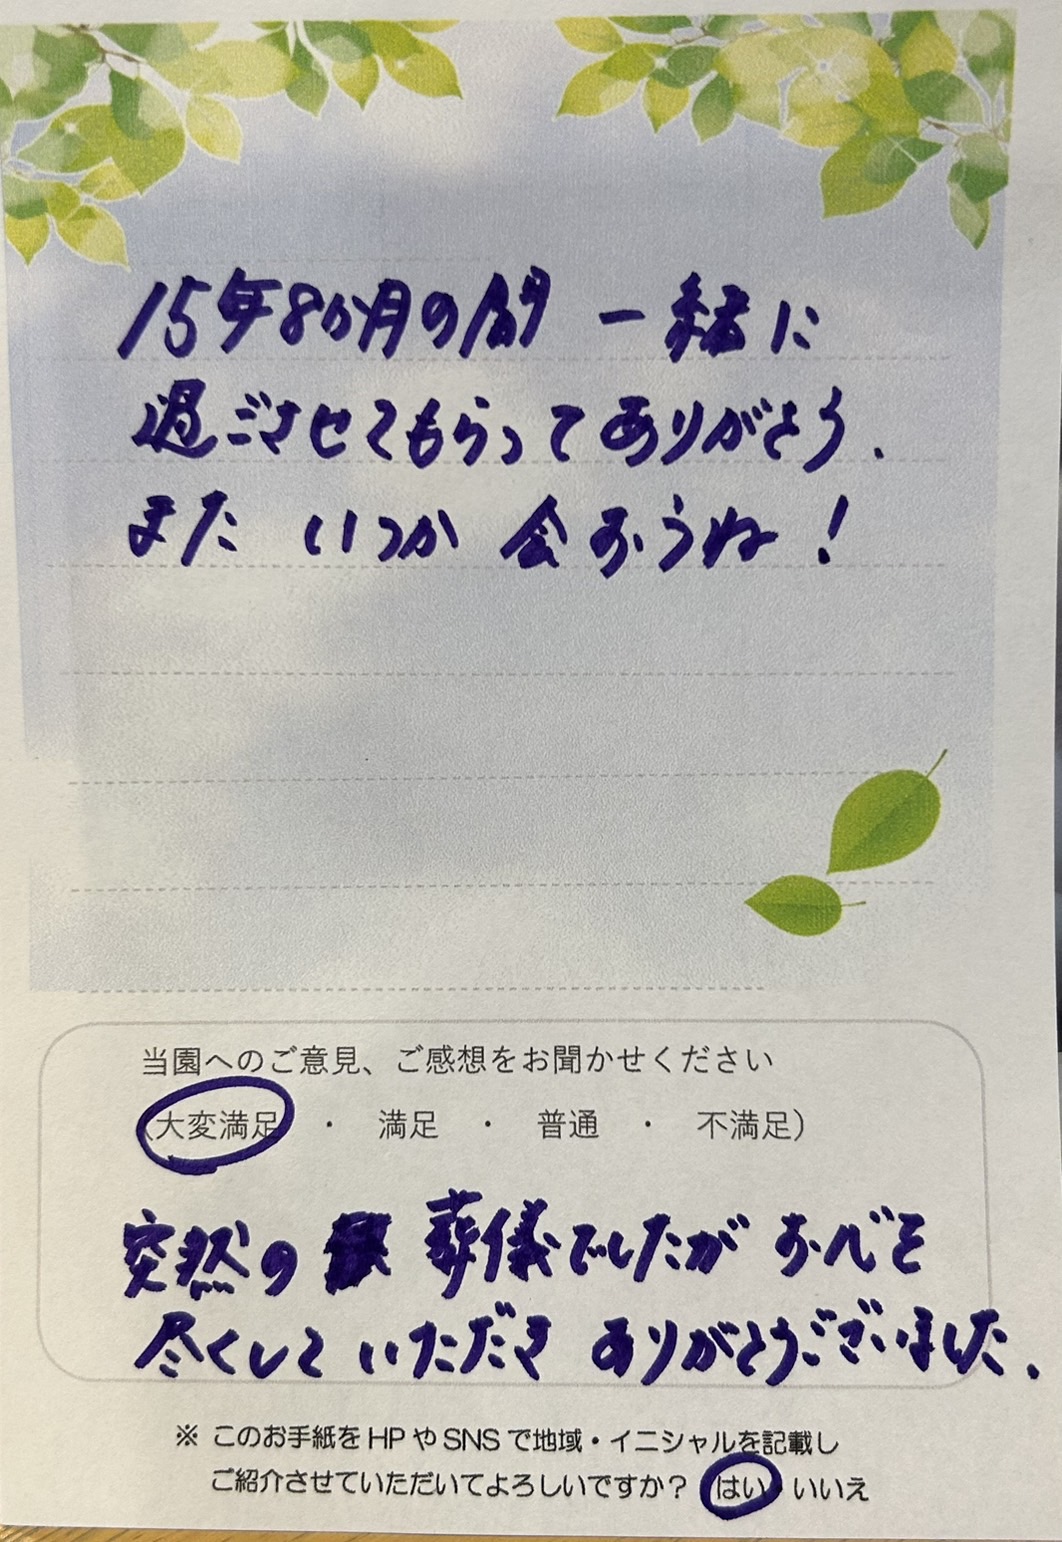 15年8か月の間 一緒に
過ごさせてもらってありがとう.
また いつか 会おうね!
当園へのご意見、ご感想をお聞かせください
(大変満足 ・ 満足 ・ 普通 ・ 不満足)
突然の 葬儀でしたが すべを
尽くして いただき ありがとうございました.
※ このお手紙をHPやSNSで地域・イニシャルを記載し
ご紹介させていただいてよろしいですか? はい・いいえ